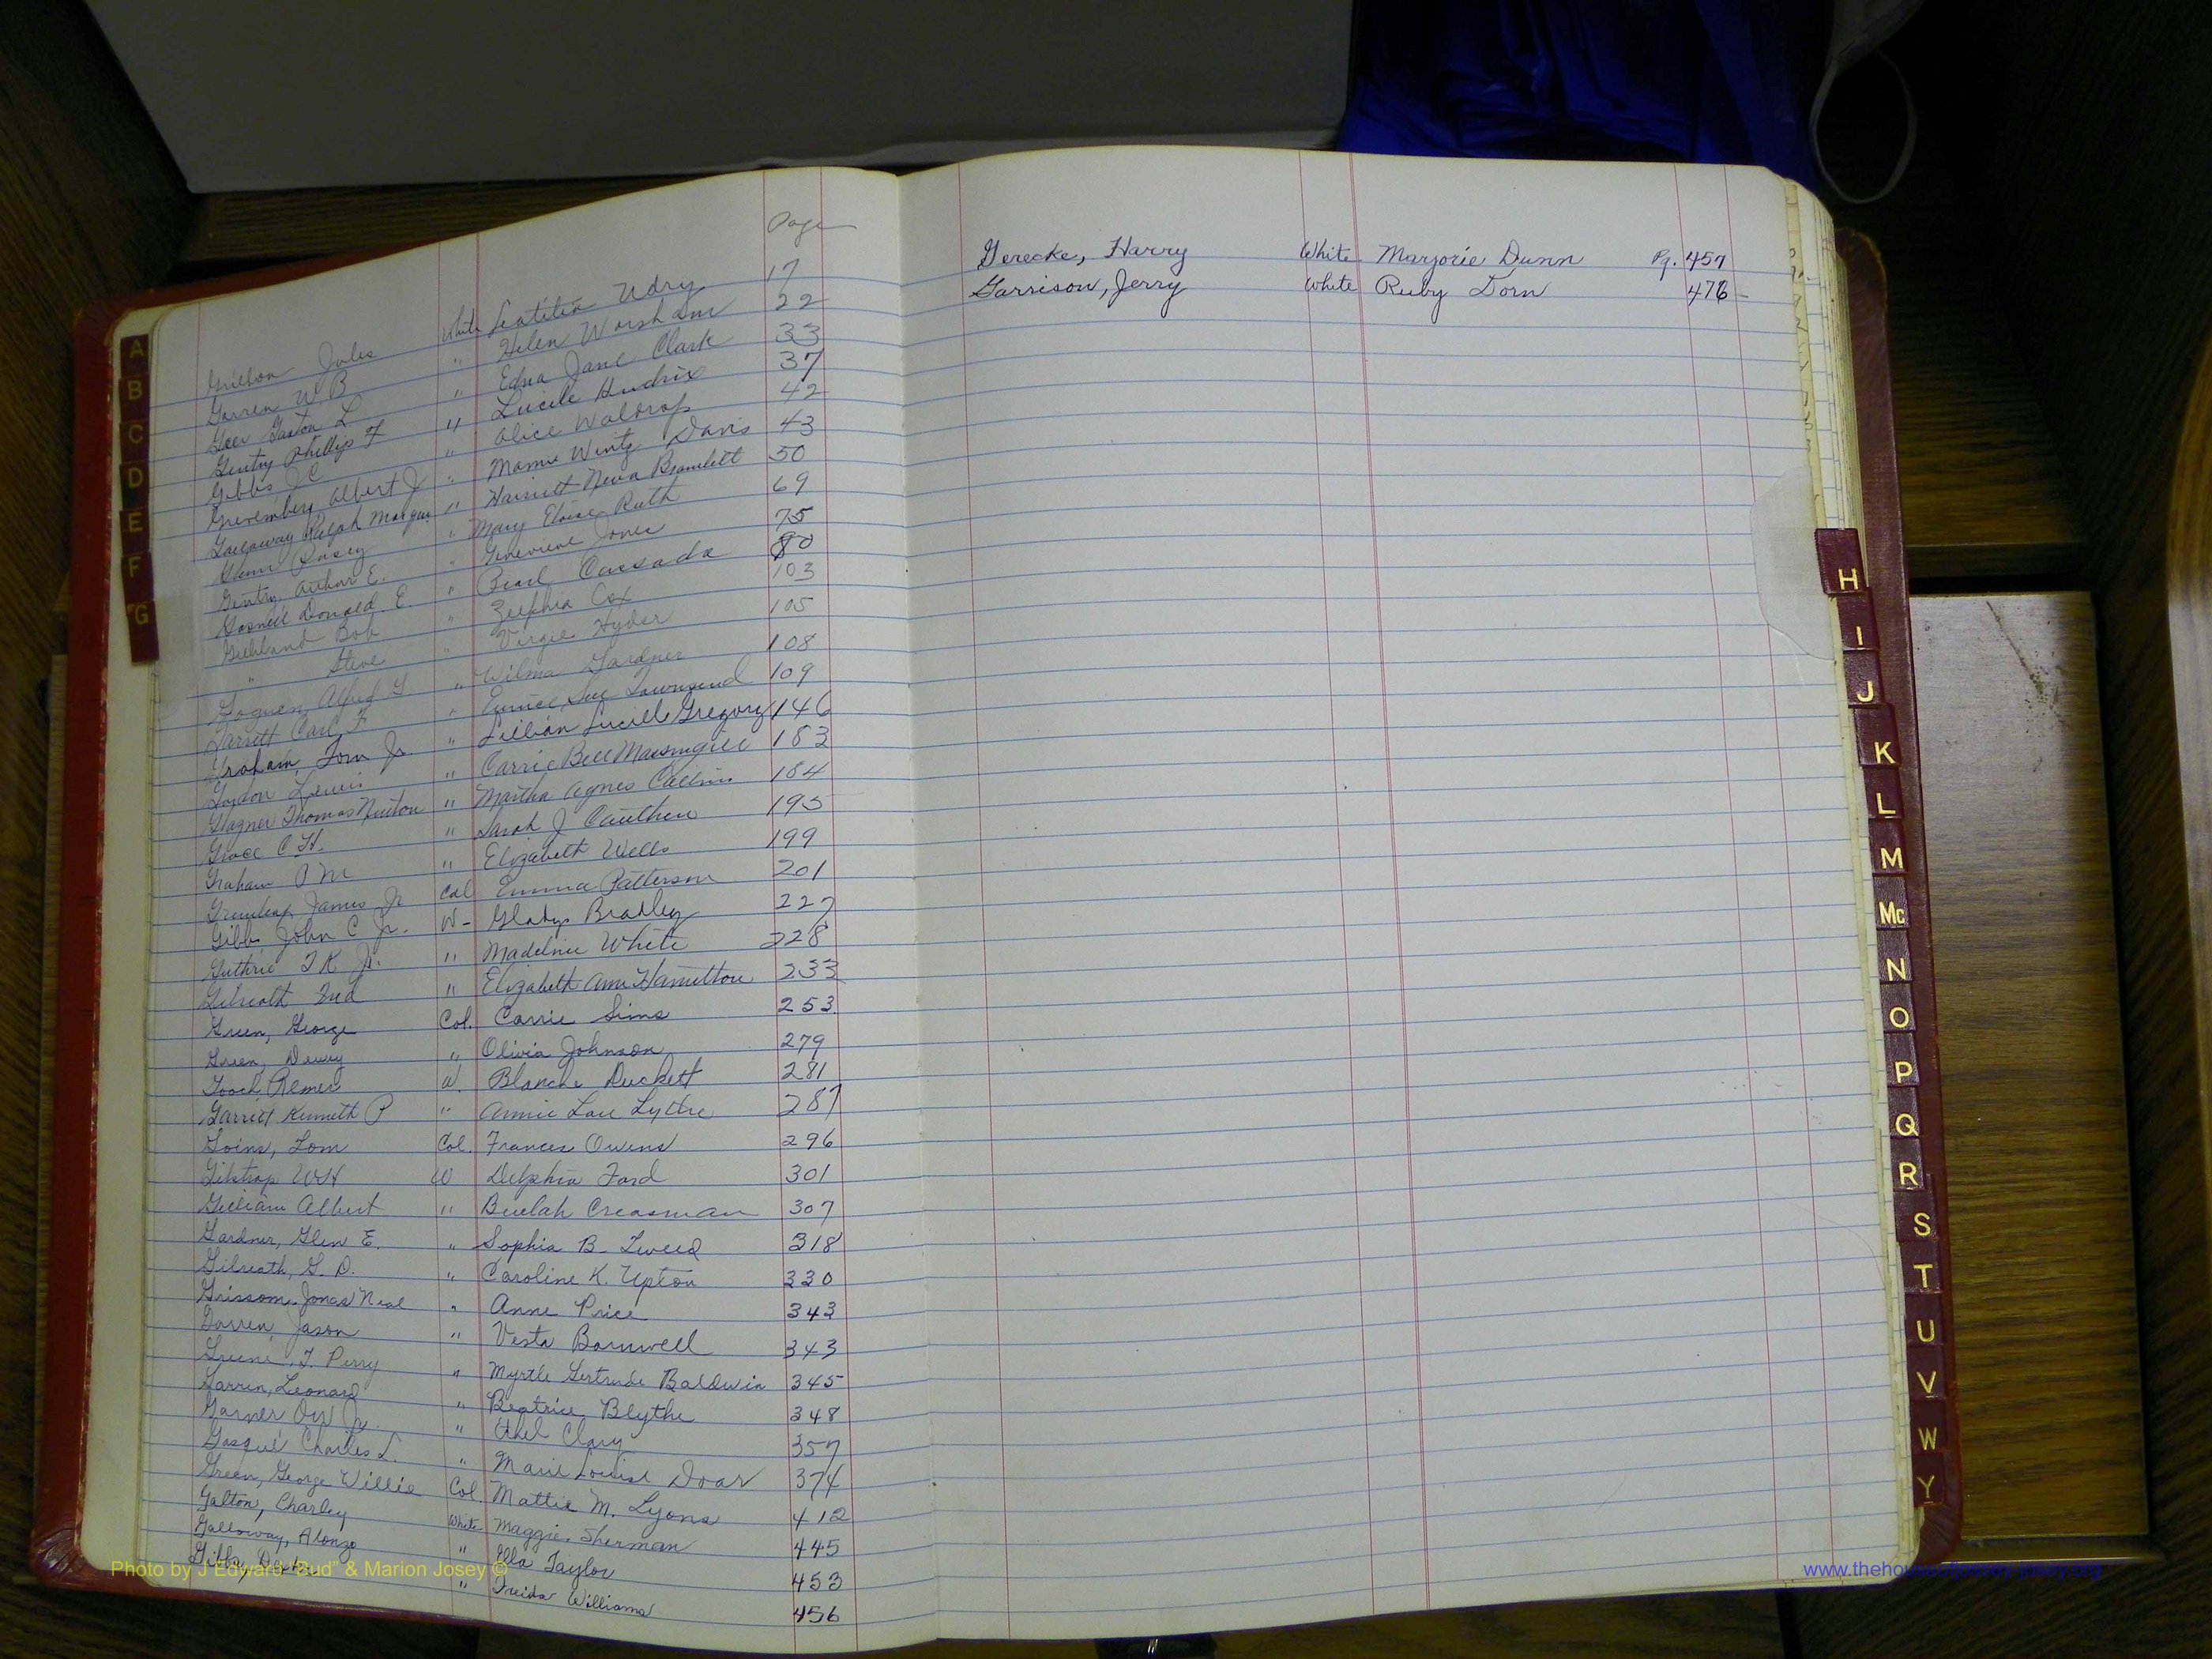 Page
Jules White Leatitia Udry 17
Garren W B " Helen Worsham 22
Geer Gaston L " Edna Jane Clark 33
Gentry Phillip F " Lucile Hudrix 37
Gibbs J C " Alice Waldrop 42
Grevemberg Albert J " Mamie Wintz Davis 43
Gallaway Ralph Morgan " Harriett Neva Bramlett 50
Glenn Casey " Mary Eloise Ruth 69
Gentry Arthur E. " Genevieve Jones 75
Gosnell Donald E. " Pearl Cassada 80
Gilliland Bob " Zelphia Cox 103
" Steve " Virgie Hyder 105
Goguen Alfred G. " Wilma Gardner 108
Garrett Carl F " Eunice Sue Townsend 109
Graham, Tom Jr. " Lillian Lucille Gregory 146
Lewis " Carrie Bell Massingill 183
Wagner Thomas Newton " Martha Agnes Collins 184
Grace C H. " Sarah J Cauthen 195
Graham P M " Elizabeth Wells 199
James Jr Col Emma Patterson 201
Gibbs John C Jr. W- Gladys Bradley 227
Guthrie T K Jr. " Madeline White 228
Gilreath Fred " Elizabeth Ann Hamilton 233
Green, George Col. Carrie Sims 253
Green, Dewey " Olivia Johnson 279
Gooch Romeo W. Blanche Duckett 281
Garrett Kenneth P " Annie Lou Lythe 287
Goins, Tom Col. Frances Owens 296
Gilstrap W H W Delphia Ford 301
Gilliam Albert " Beulah Creasman 307
Gardner, Glen E. " Sophia B- Tweed 318
Gilreath, G. D. " Caroline K. Upton 330
Grissom, Jonas Neal " Anne Price 343
Garren, Jason " Vesta Barnwell 343
Greene, T. Perry " Myrtle Gertrude Baldwin 345
Garren, Leonard " Beatrice Blythe 348
Garner Jr. " Ethel Clary 357
Gasque Charles L. " Marie Louise Doar 374
Green, George Willie Col. Mattie M. Lyons 412
Galton, Charley White Maggie Sherman 445
Galloway, Alonzo " Ella Taylor 453
Gibby " Freida Williams 456
Gerecke, Harry White Marjorie Dunn Pg. 457
Garrison, Jerry White Ruby Dorn 476
A
B
C
D
E
F
G
H
I
J
K
L
M
Mc
N
O
P
Q
R
S
T
U
V
W
Y
Photo by J Edward "Bud" & Marion Josey ©